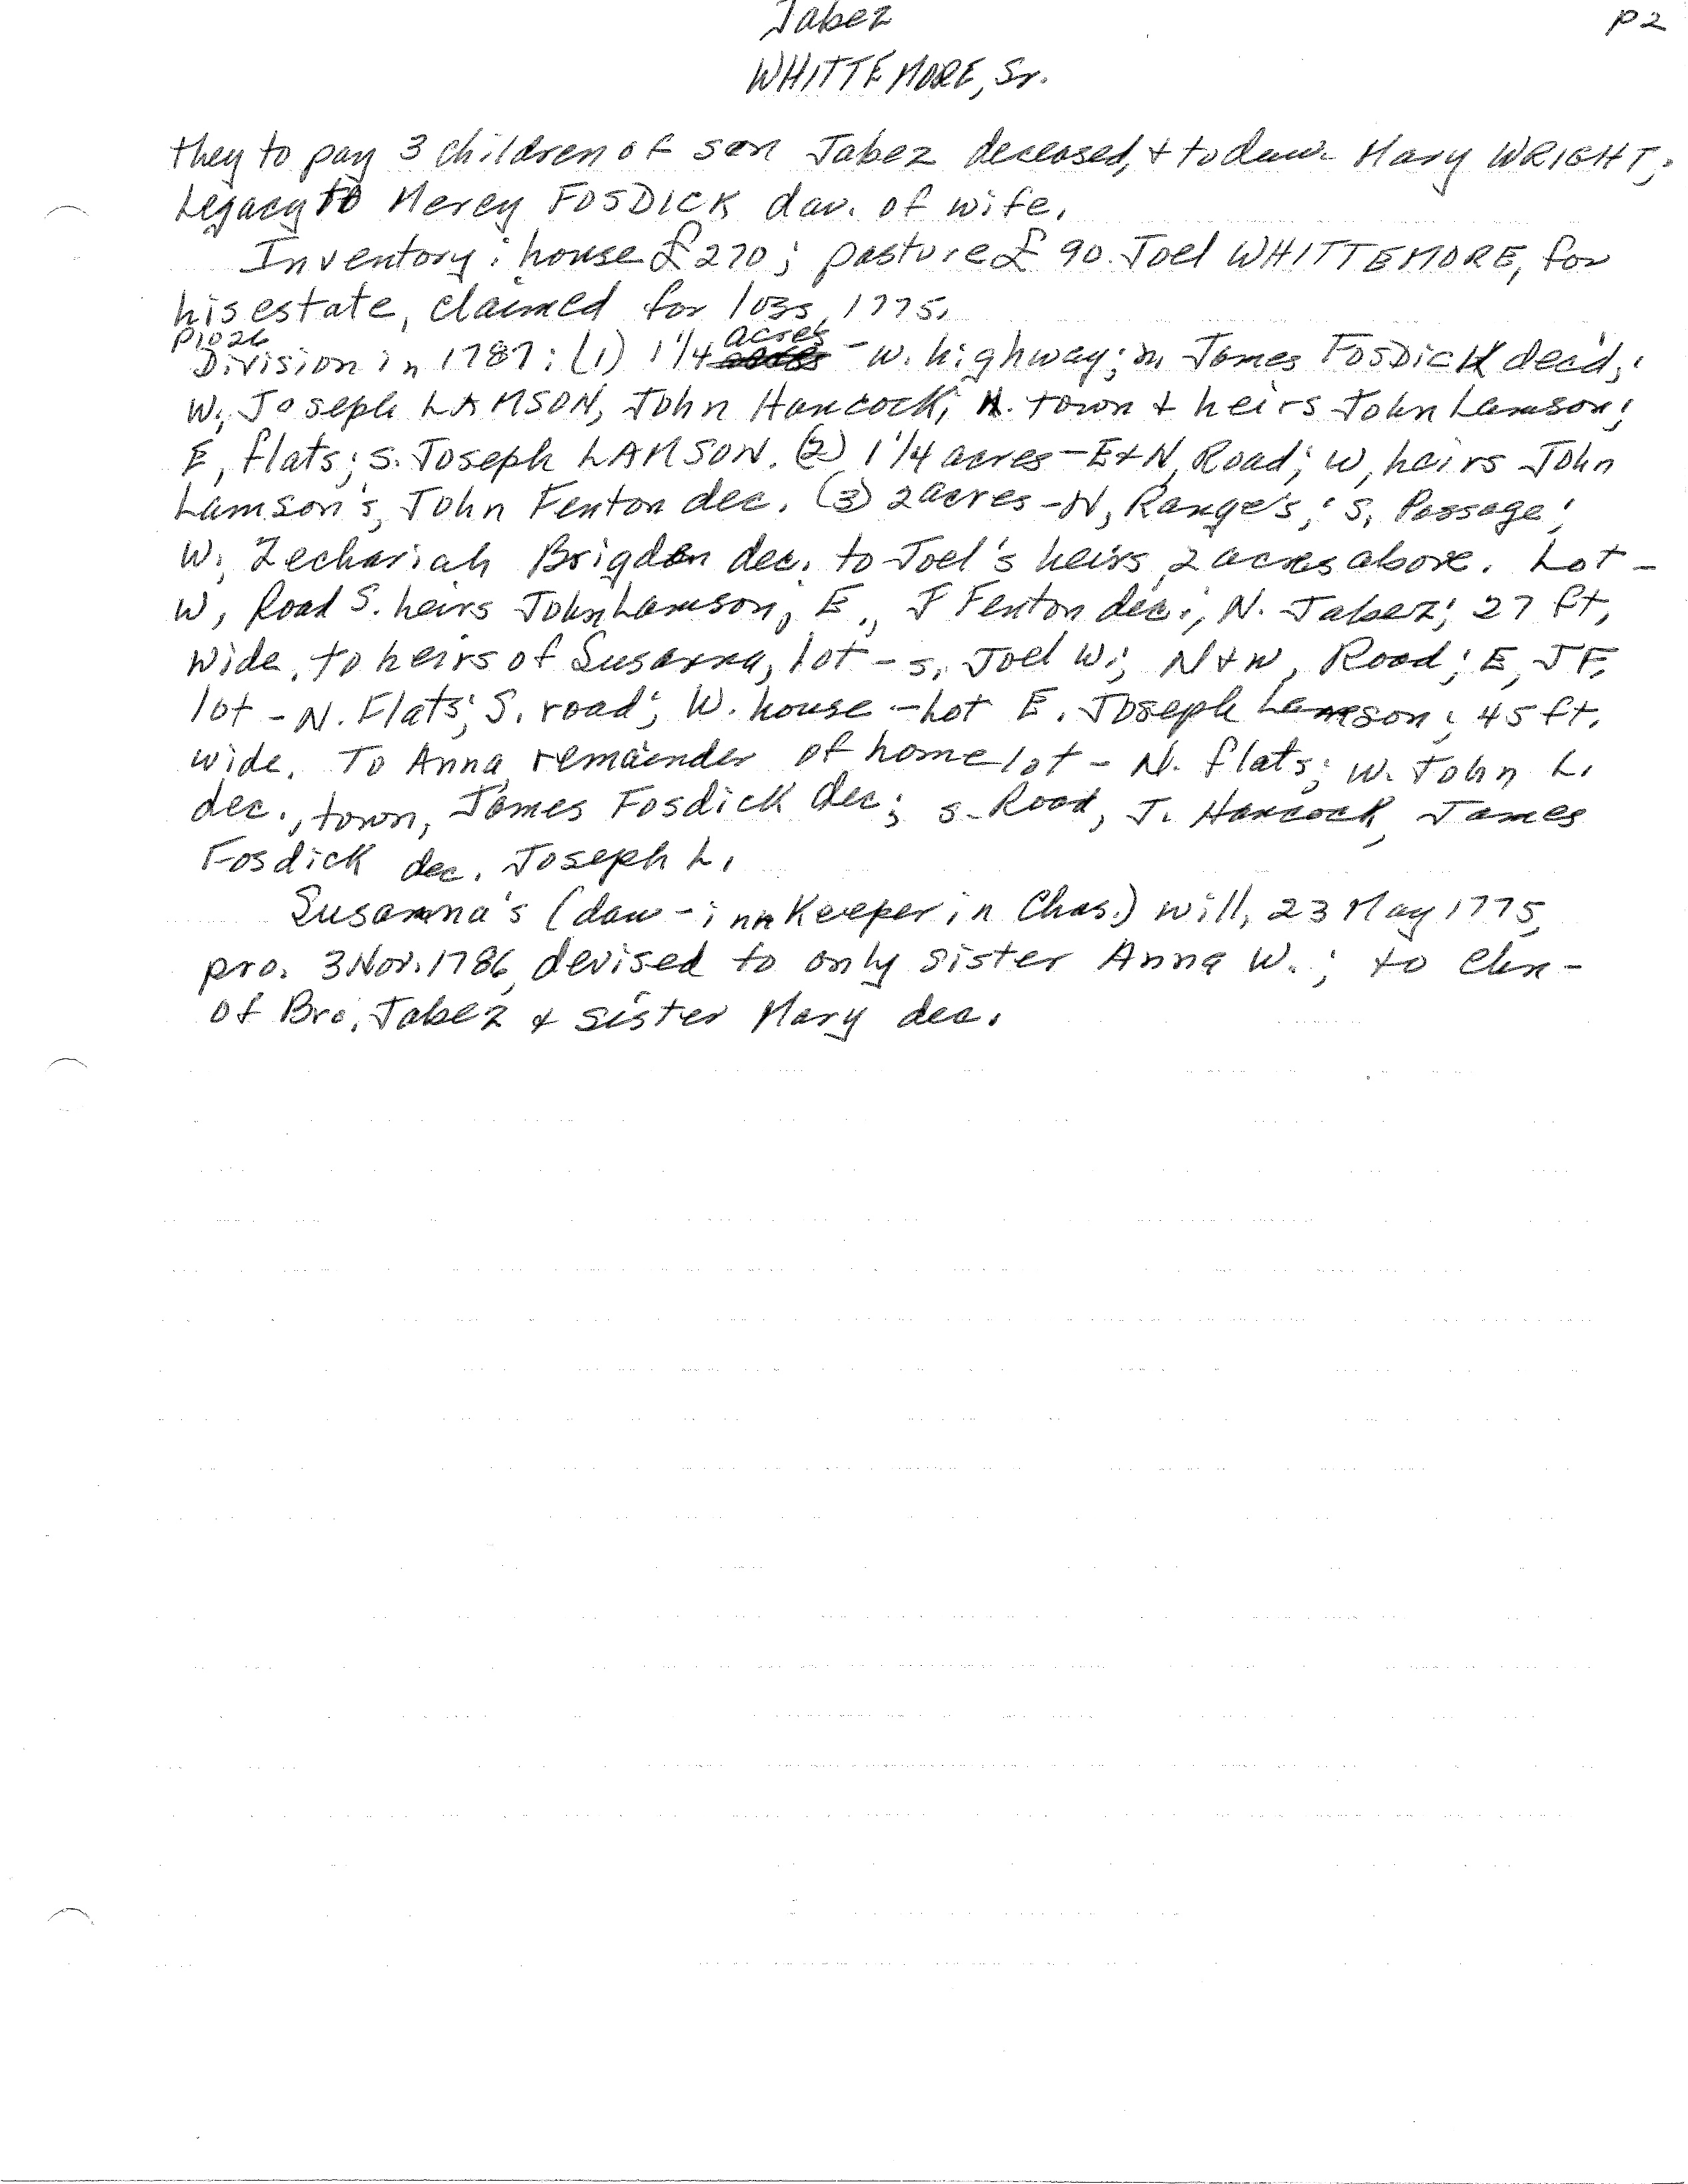 Jabez
p2
WHITTEMORE, Sr.
they to pay 3 children of son Jabez deceased, + to daw. Mary WRIGHT;
Legacy to Mercy FOSDICK dau. of wife.
Inventory: house £270; pasture £90. Joel WHITTEMORE, for
his estate, claimed for loss, 1775.
P1026
acres
Division in 1787: (1) 1 1/4 - w. highway; n James FOSDICK dec'd;
W, Joseph LAMSON, John Hancock; N. town + heirs John Lamson;
E, flats; S. Joseph LAMSON. (2) 1 1/4 acres - E+N, Road; W, heirs John
Lamson's, John Fenton dec. (3) 2 acres - N, Range's; S, Passage;
W, Zechariah Brigden dec. to Joel's heirs, 2 acres above. Lot -
W, Road S. heirs John Lamson, E., J Fenton dec.; N. Jabez; 27 ft,
wide, to heirs of Susanna, lot - s, Joel W.; N+W, Road; E, JF,
lot - N. Flats; S. road; W. house - Lot E. Joseph Lamson; 45 ft.
wide. To Anna, remainder of home lot - N. flats; W. John L.
dec., town, James Fosdick dec; s. Road, J. Hancock, James
Fosdick dec. Joseph L.
Susanna's (daw - innkeeper in Chas.) will, 23 May 1775,
pro. 3 Nov. 1786, devised to only sister Anna W.; to chn -
of Bro. Jabez + sister Mary dec.